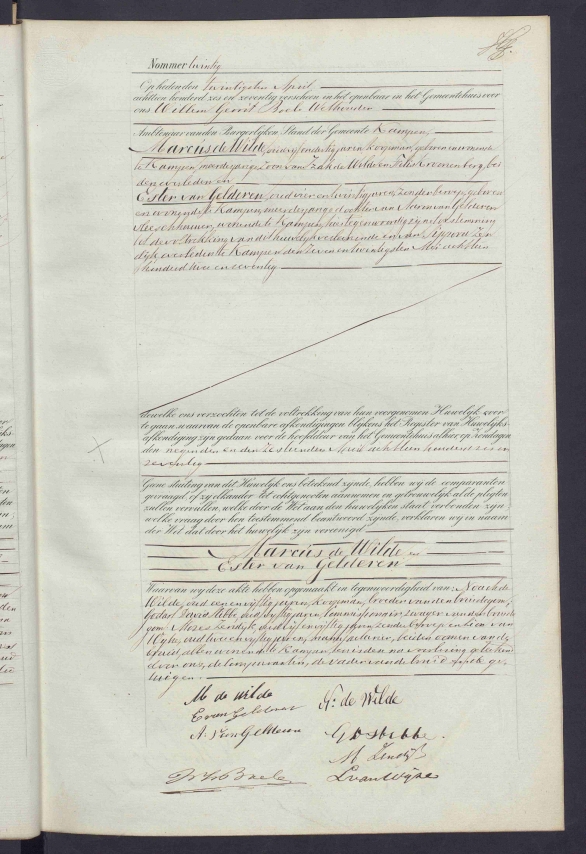 Nommer twintig
Op heden den twintigsten April
achttien honderd zes en zeventig verscheen in het openbaar in het Gemeentehuis voor
ons Willem Gerrit Boele Wethouder
Ambtenaar van den Burgerlijken Stand der Gemeente Kampen,
Marcus de Wilde, oud jaren koopman, geboren en wonende
te Kampen, meerderjarige Zoon van Izak de Wilde en Kromenberg, bei
den overleden en
Ester van Gelderen, oud vier en twintig jaren, zonder beroep, geboren
en wonende te Kampen, meerderjarige dochter van Aaron van Gelderen
vleeschhouwer, wonende te Kampen, hier tegenwoordig zijne toestemming
tot de voltrekking van dit huwelijk verleenende en van Zen
dijk overleden te Kampen den zeven en twintigsten Mei achttien
honderd twee en zeventig
dewelke ons verzochten tot de voltrekking van hun voorgenomen Huwelijk over
te gaan, waarvan de openbare afkondigingen blijkens het Register van Huwelijks-
afkondiging zijn gedaan voor de hoofddeur van het Gemeentehuis alhier, op Zondagen
den negenden en den zestienden April achttien honderd zes en
zeventig
Geene stuiting van dit Huwelijk ons beteekend zijnde, hebben wij de comparanten
gevraagd of zij elkander tot echtgenooten aannemen en getrouwelijk al de pligten
zullen vervullen, welke door de Wet aan den huwelijken staat verbonden zijn
welke vraag door hen toestemmend beantwoord zijnde, verklaren wij in naam
der Wet dat door het huwelijk zijn vereenigd
Marcus de Wilde en
Ester van Gelderen
Waarvan wij deze akte hebben opgemaakt in tegenwoordigheid van: Noach de
Wilde, oud een en vijftig jaren, koopman, broeder van den bruidegom,
David Stibbe, oud vijftig jaren, zwager van den bruide
gom, Mozes Zendijk, oud vijf en vijftig jaren, zonder beroep en Leon van
Wijk, oud twee en vijftig jaren, beiden oomen van de
bruid, allen wonende te Kampen, hen is den na voorlezing geteekend
door ons, de comparanten, de vader van de bruid en de ge-
tuigen.
M de Wilde
N: de Wilde
E van Gelderen
A van Gelderen
G D Stibbe.
M Zendijk
L van Wijk
W G Boele